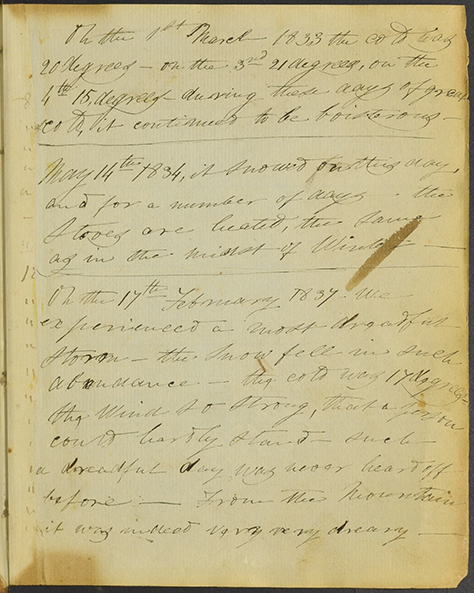 On the 1st March 1833 the cold was
20 degrees - on the 3rd 21 degrees, on the
4th 15, degrees - during these days of great
cold, it continued to be boisterous -
May 14th 1834, it snowed on this day,
and for a number of days - the
Stoves are heated, the same
as in the midst of Winter -
On the 17th February 1837 - we
experienced a most dreadful
storm - the snow fell in such
abundance - the cold was 17 degrees -
the Wind so strong, that a person
could hardly stand - such
a dreadful day was never heard off
before - From the Mountain
it was indeed very very dreary -